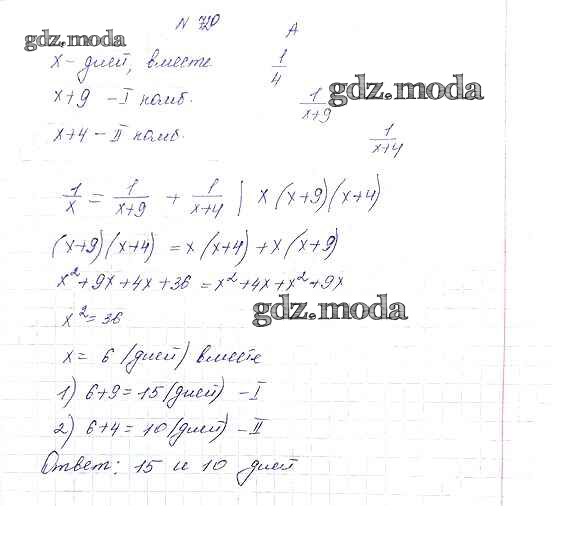 N 720 A
gdz.moda
x - дней, вместе 1/4
x+9 - I комб. 1/(x+9)
gdz.moda
x+4 - II комб. 1/(x+4)
1/x = 1/(x+9) + 1/(x+4) | x (x+9)(x+4)
(x+9)(x+4) = x (x+4) + x (x+9)
x²+9x+4x+36 = x²+4x+x²+9x
gdz.moda
x² = 36
x = 6 (дней) вместе
1) 6+9 = 15 (дней) - I
2) 6+4 = 10 (дней) - II
Ответ: 15 и 10 дней